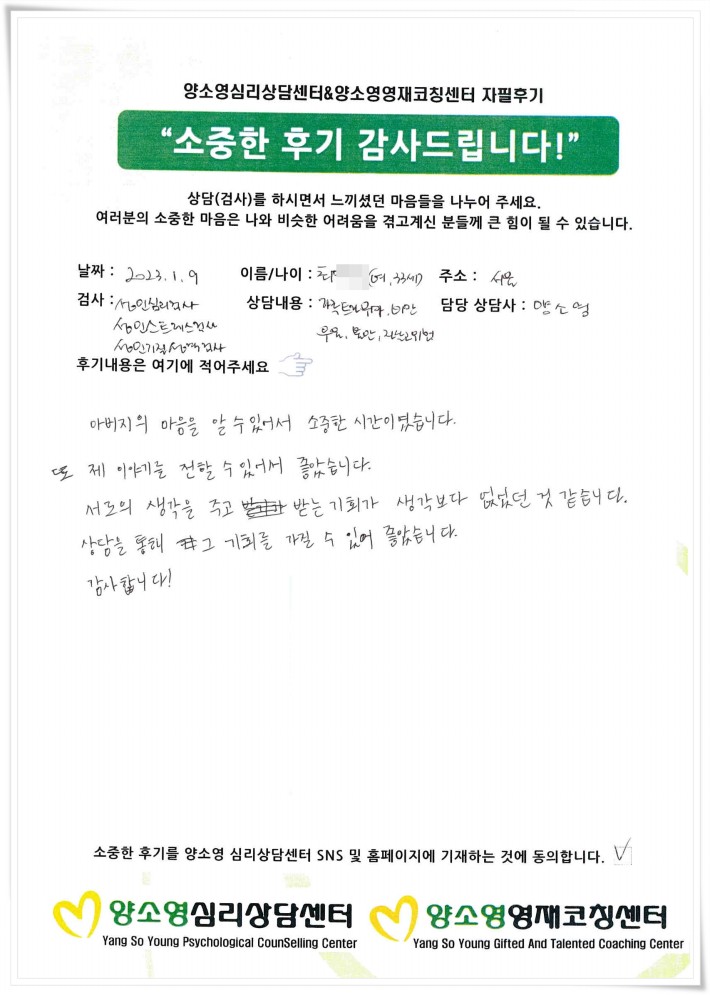 양소영심리상담센터&양소영영재코칭센터 자필후기
“소중한 후기 감사드립니다!”
상담(검사)를 하시면서 느끼셨던 마음들을 나누어 주세요.
여러분의 소중한 마음은 나와 비슷한 어려움을 겪고계신 분들께 큰 힘이 될 수 있습니다.
날짜 : 2023.1.9 이름/나이 : 최 (여, 33세) 주소 : 서울
검사 : 성인심리검사 상담내용 : 가족트라우마, 비만 담당 상담사 : 양소영
성인스트레스검사 우울, 불안,
성인기질성격검사
후기내용은 여기에 적어주세요
아버지의 마음을 알 수 있어서 소중한 시간이였습니다.
또 제 이야기를 전할 수 있어서 좋았습니다.
서로의 생각을 주고 받는 기회가 생각보다 없었던 것 같습니다.
상담을 통해 그 기회를 가질 수 있어 좋았습니다.
감사합니다!
소중한 후기를 양소영 심리상담센터 SNS 및 홈페이지에 기재하는 것에 동의합니다.
양소영심리상담센터 양소영영재코칭센터
Yang So Young Psychological CounSelling Center Yang So Young Gifted And Talented Coaching Center